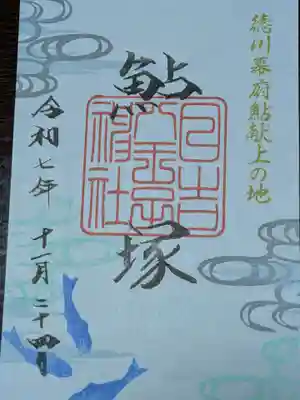 徳川幕府鮎献上の地
鮎塚
日吉
八王子
神社
令和七年 十一月二十四日